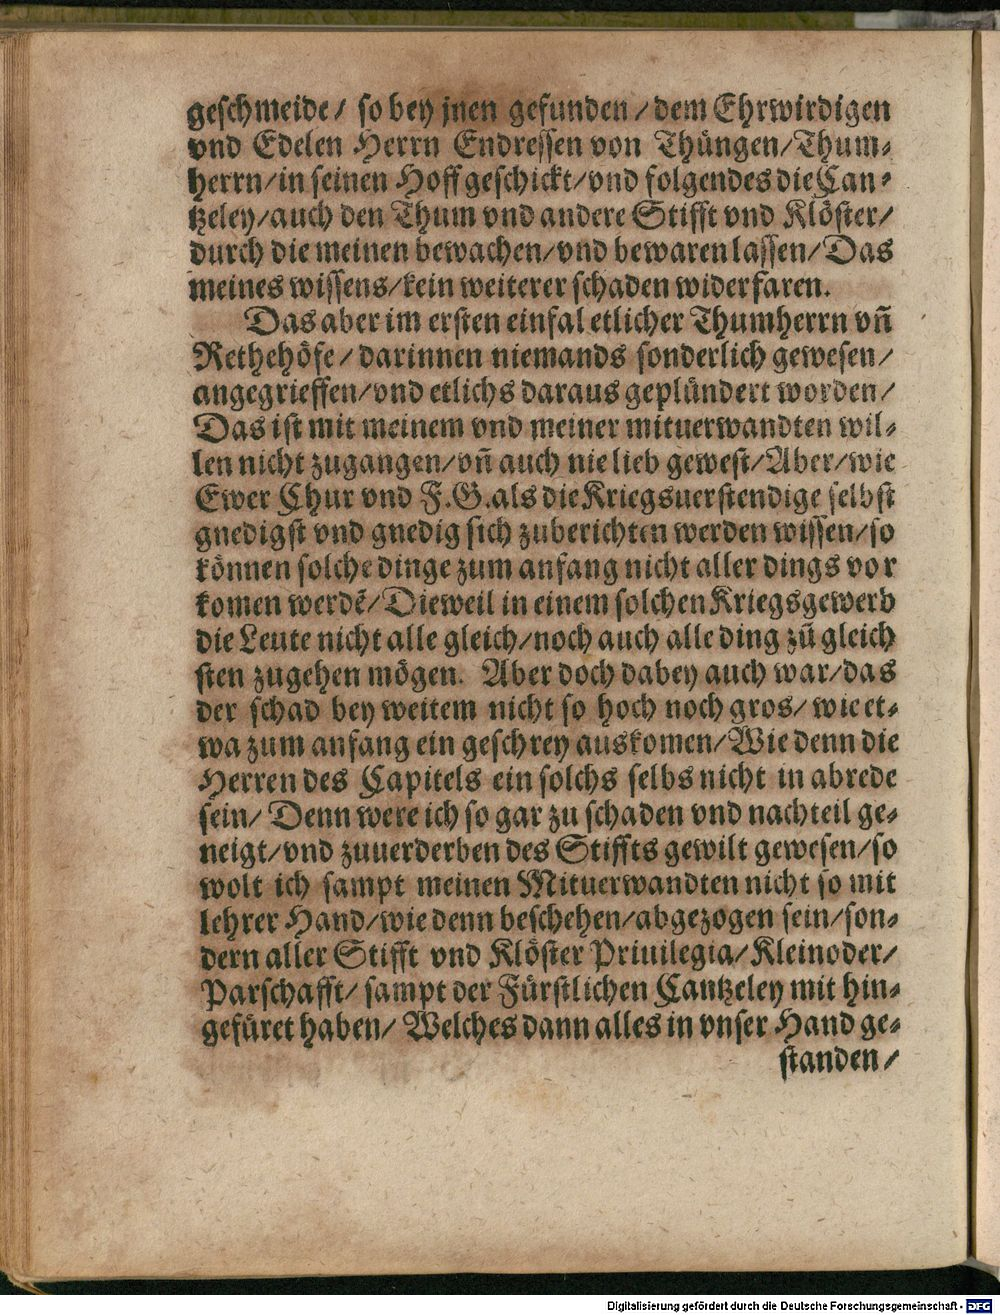 geschmeide/ so bey jnen gefunden/ dem Ehrwirdigen
vnd Edelen Herrn Endressen von Thüngen/Thum-
herrn/in seinen Hoff geschickt/vnd folgendes die Can-
tzeley/auch den Thum vnd andere Stifft vnd Klöster/
durch die meinen bewachen/vnd bewaren lassen/Das
meines wissens/kein weiterer schaden widerfaren.
Das aber im ersten einfal etlicher Thumherrn vñ
Rethehöfe/ darinnen niemands sonderlich gewesen/
angegrieffen/vnd etlichs daraus geplündert worden/
Das ist mit meinem vnd meiner mituerwandten wil-
len nicht zugangen/vñ auch nie lieb gewest/Aber/wie
Ewer Chur vnd F.G.als die Kriegsuerstendige selbst
gnedigst vnd gnedig sich zuberichten werden wissen/so
können solche dinge zum anfang nicht aller dings vor
komen werdē/Dieweil in einem solchen Kriegsgewerb
die Leute nicht alle gleich/noch auch alle ding zū gleich
sten zugehen mögen. Aber doch dabey auch war/das
der schad bey weitem nicht so hoch noch gros/ wie et-
wa zum anfang ein geschrey auskomen/Wie denn die
Herren des Capitels ein solchs selbs nicht in abrede
sein/ Denn were ich so gar zu schaden vnd nachteil ge-
neigt/vnd zuuerderben des Stiffts gewilt gewesen/so
wolt ich sampt meinen Mituerwandten nicht so mit
lehrer Hand/wie denn beschehen/abgezogen sein/son-
dern aller Stifft vnd Klöster Priuilegia/Kleinoder/
Parschafft/ sampt der Fürstlichen Cantzeley mit hin-
gefüret haben/ Welches dann alles in vnser Hand ge-
standen/
Digitalisierung gefördert durch die Deutsche Forschungsgemeinschaft - DFG